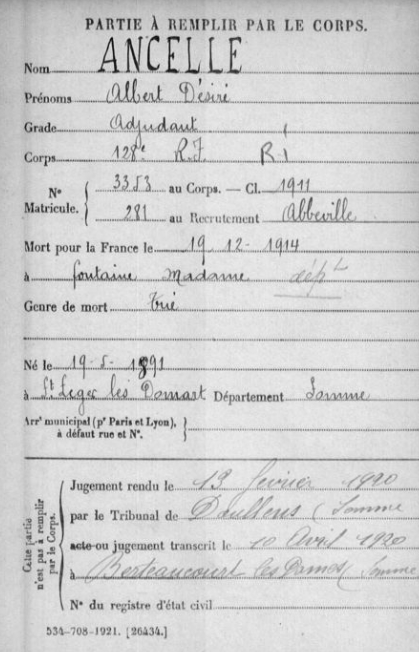 PARTIE À REMPLIR PAR LE CORPS.
Nom ANCELLE
Prénoms Albert Désiré
Grade Adjudant
Corps 128e R.I. R I
N° Matricule. { 3353 au Corps. — Cl. 1911
281 au Recrutement Abbeville
Mort pour la France le 19 12 - 1914
à fontaine Madame dép t
Genre de mort Tué
Né le 19-5-1891
à St Leger les Domart Département Somme
Arrt municipal (pr Paris et Lyon), à défaut rue et N°. }
Cette partie n'est pas à remplir par le Corps.
Jugement rendu le 13 février 1920
par le Tribunal de Doullens (Somme
acte ou jugement transcrit le 10 Avril 1920
à Berteaucourt les Dames (Somme
N° du registre d'état civil
534-708-1921. [26434.]